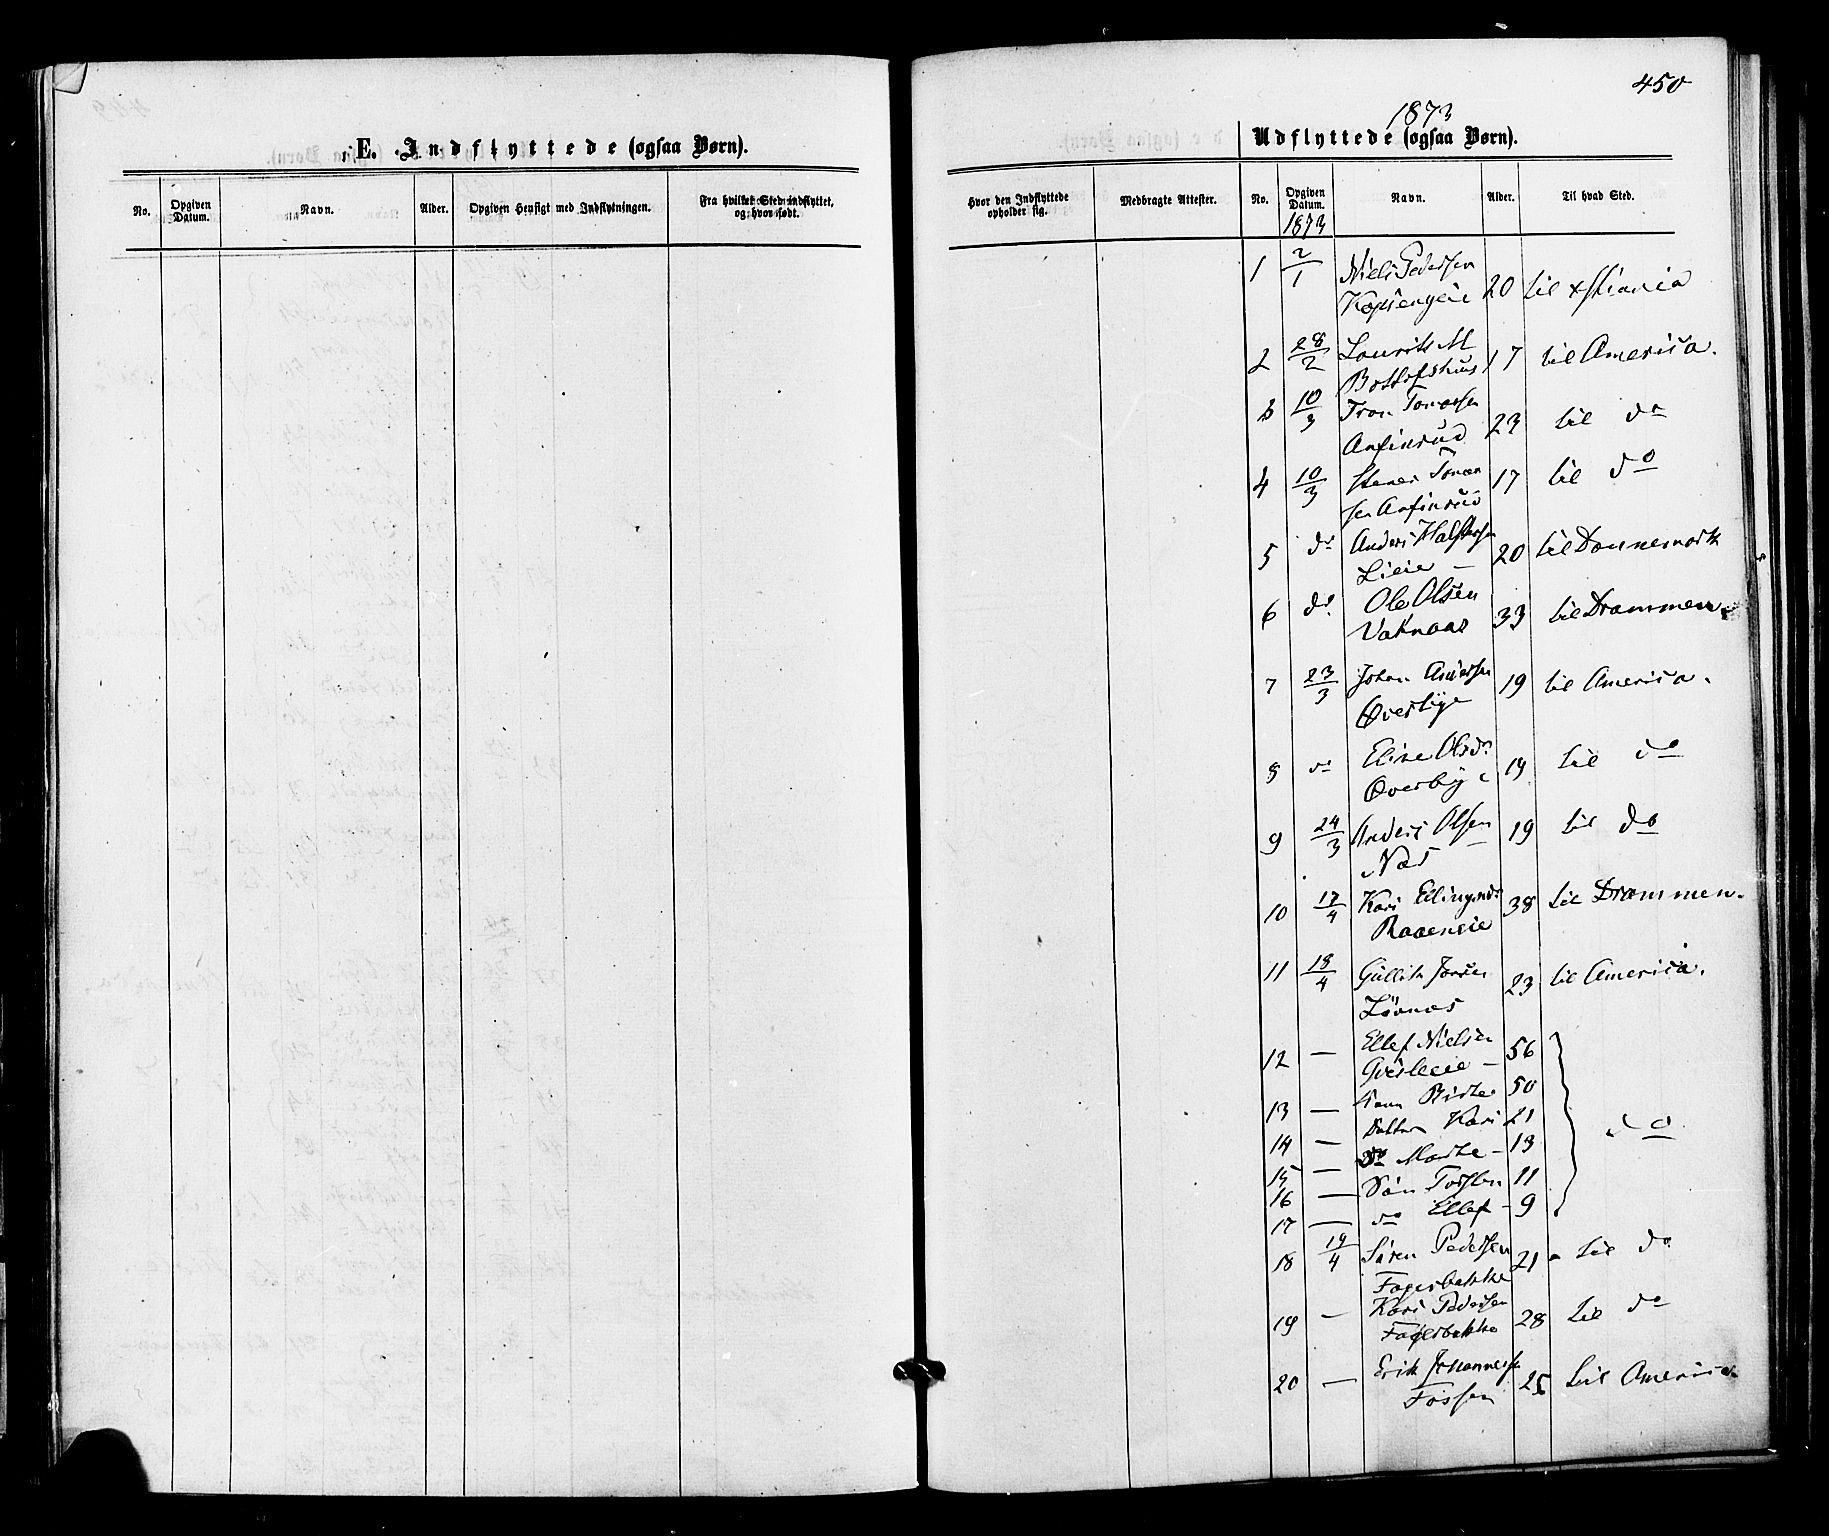 E. Indflyttede (ogsaa Børn).
No.
Opgiven Datum.
Navn.
Alder.
Opgiven Hensigt med Indflytningen.
Fra hvilket Sted indflyttet, og hvor født.
450
1873
Udflyttede (ogsaa Børn).
Hvor den Indflyttede opholder sig.
Medbragte Attester.
No.
Opgiven Datum.
Navn.
Alder.
Til hvad Sted.
1873
1 2/1 Niels Pedersen
20 til Xstiania
2 28/2 Laurits M
17 til America.
3 10/3 Tron
Anfinrud 23 til do
4 10/3 Stener 17 til do
sen Anfinrud
5 do Anders
Lieie — 20 til Dannemark
6 do Ole Olsen
33 til Drammen.
7 23/3 Johan Andersen 19 til America.
Overbye
8 do Eline Olsdr
Overbye 19 til do
9 24/3 Anders Olsen 19 til do
Næs
10 17/4 Kari Ellingsdr 38 til Drammen.
Raaeneie
11 18/4 Gullik 23 til America.
12 — Ellef Nielsen 56
13 — Birthe 50
14 — Datter Kari 21
do
15 — do Marthe — 13
16 — Søn Torsten 11
17 — do Ellef — 9
18 19/4 Søren Pedersen 21 til do
Fagerbakke
19 — Kari Pedersen 28 til do
Fagerbakke
20 — Erik Johannessen 25 til America.
Fossen